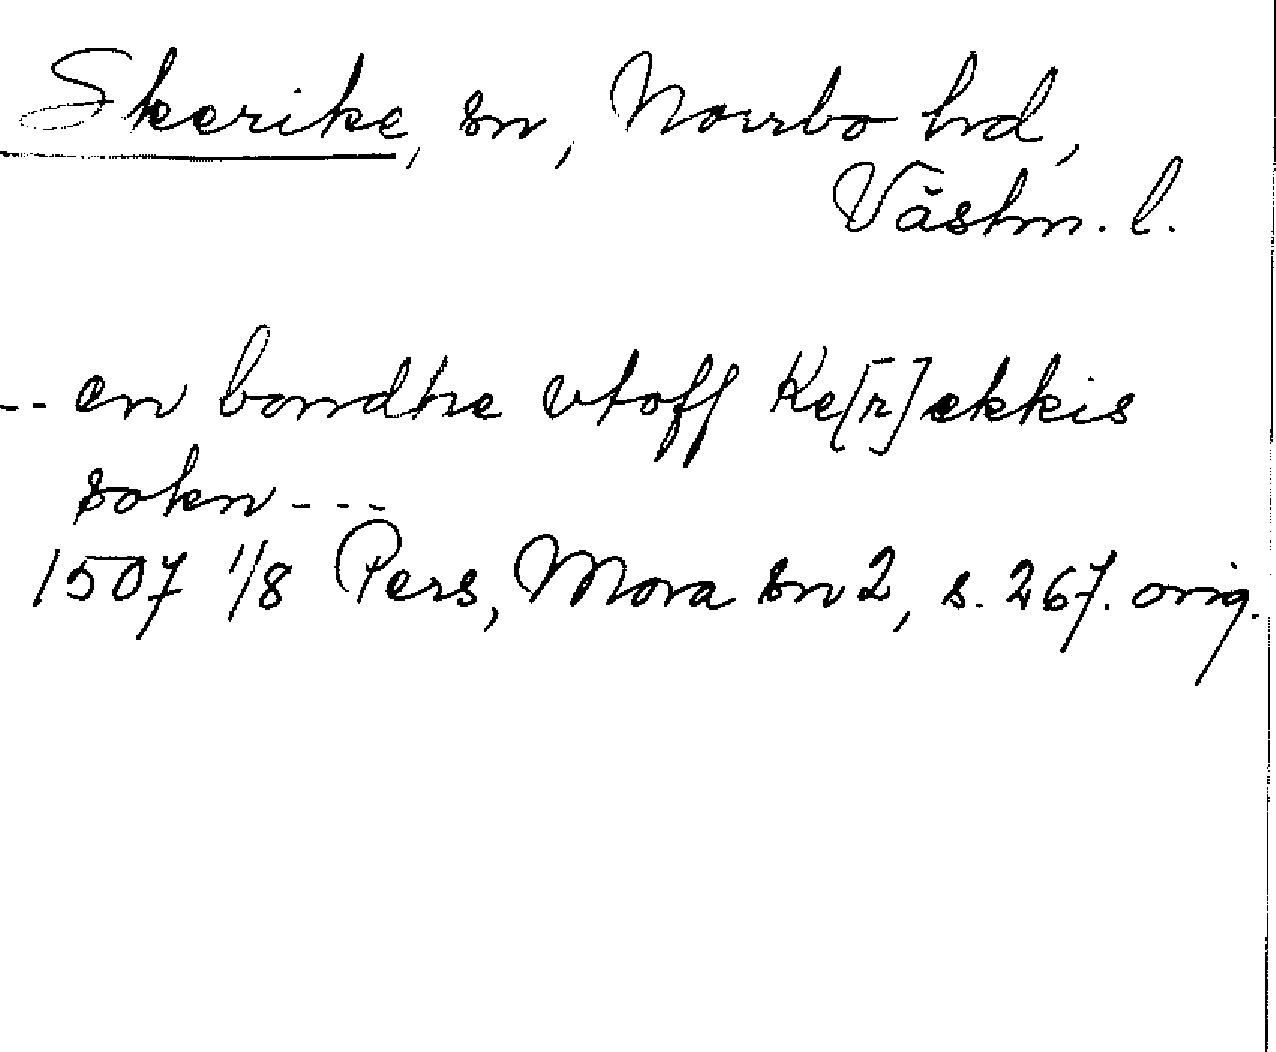 Skerike, sn, Norrbo hd,
Västm. l.
-- en bondhe vtoff Ke[r]ekkis
sokn ---
1507 1/8 Pers, Mora sn 2, s. 267. orig.